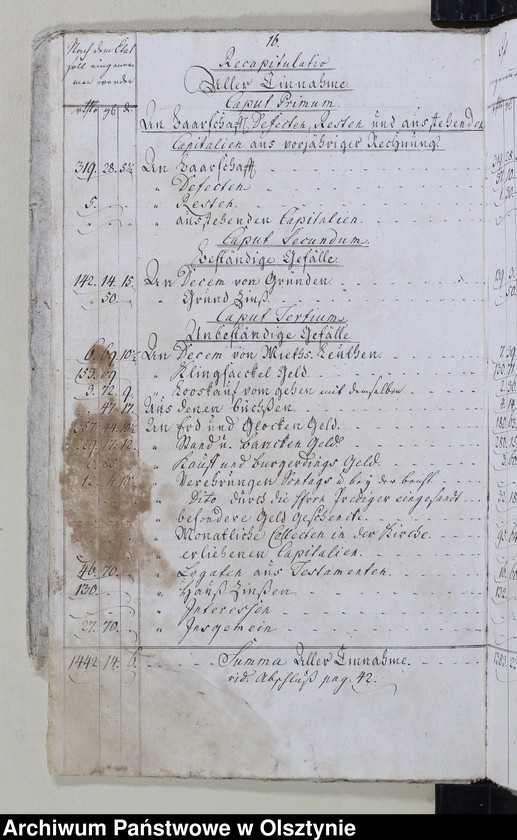 16.
Nach dem Etat
soll eingenom
men werden
rthr gl. d.
Recapitulatio
Aller Einnahme
Caput Primum.
An Baarschafft, Defecten, Resten und ausstehenden
Capitalien aus vorjähriger Rechnung.
319. 28. 5½ An Baarschafft
" Defecten
5. " Resten.
" ausstehenden Capitalien.
Caput Secundum.
Beständige Gefälle.
142. 14. 15. An Decem von Gründen.
50. " Grund Zinß.
Caput Tertium.
Unbeständige Gefälle
6. 69. 10½ An Decem von Mieths Leuthen.
153. 79 " Klingsaeckel Geld.
3. 72. 9. " vom gehen mit demselben
47. 17. Aus denen büchßen.
257. 44. 10½ An Erd und Glocken Geld.
229. 17. 12. " Stand u. Bancken Geld
" Kauf und burgerdings Geld.
" Verehrungen Sontags u. bey der beicht
" Dito durch die Herrn Prediger eingesandt
" besondere Geld Geschencke.
" Monatliche Collecten in der Kirche.
" erliehenen Capitalien.
46. 70. " Legaten aus Testamenten.
130. " Hauß Zinßen
" Interessen
27. 70. " Insgemein
1442. 14. 6. Summa Aller Einnahme.
vid. Abschluß pag. 42.
Archiwum Państwowe w Olsztynie